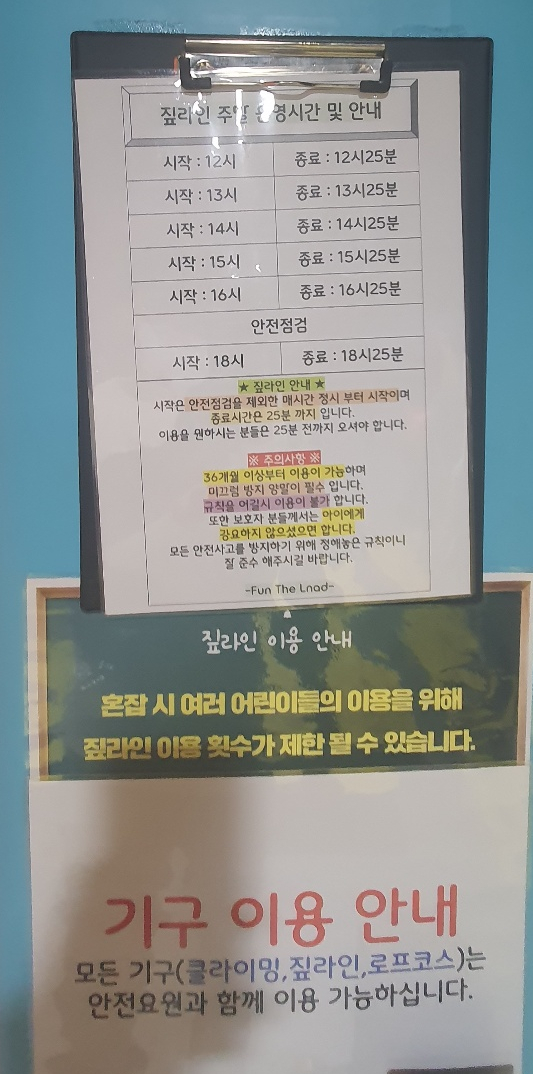 짚라인 주말 운영시간 및 안내
시작 : 12시 종료 : 12시25분
시작 : 13시 종료 : 13시25분
시작 : 14시 종료 : 14시25분
시작 : 15시 종료 : 15시25분
시작 : 16시 종료 : 16시25분
안전점검
시작 : 18시 종료 : 18시25분
★ 짚라인 안내 ★
시작은 안전점검을 제외한 매시간 정시 부터 시작이며
종료시간은 25분 까지 입니다.
이용을 원하시는 분들은 25분 전까지 오셔야 합니다.
※ 주의사항 ※
36개월 이상부터 이용이 가능하며
미끄럼 방지 양말이 필수 입니다.
규칙을 어길시 이용이 불가 합니다.
또한 보호자 분들께서는 아이에게
강요하지 않으셨으면 합니다.
모든 안전사고를 방지하기 위해 정해놓은 규칙이니
잘 준수 해주시길 바랍니다.
-Fun The Lnad-
짚라인 이용 안내
혼잡 시 여러 어린이들의 이용을 위해
짚라인 이용 횟수가 제한 될 수 있습니다.
기구 이용 안내
모든 기구(클라이밍,짚라인,로프코스)는
안전요원과 함께 이용 가능하십니다.